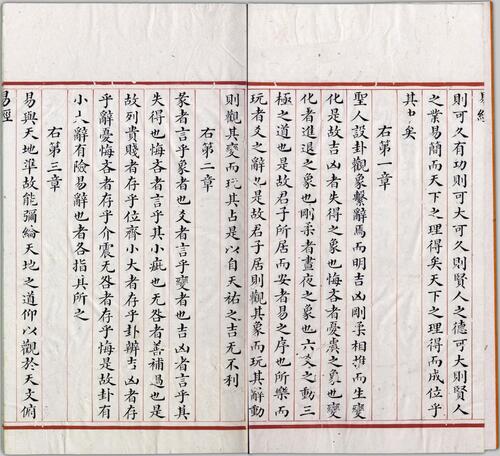 易經
則可久有功則可大可久則賢人之德可大則賢人
之業易簡而天下之理得矣天下之理得而成位乎
其中矣
右第一章
聖人設卦觀象繫辭焉而明吉凶剛柔相推而生變
化是故吉凶者失得之象也悔吝者憂虞之象也變
化者進退之象也剛柔者晝夜之象也六爻之動三
極之道也是故君子所居而安者易之序也所樂而
玩者爻之辭也是故君子居則觀其象而玩其辭動
則觀其變而玩其占是以自天祐之吉无不利
右第二章
彖者言乎象者也爻者言乎變者也吉凶者言乎其
失得也悔吝者言乎其小疵也无咎者善補過也是
故列貴賤者存乎位齊小大者存乎卦辨吉凶者存
乎辭憂悔吝者存乎介震无咎者存乎悔是故卦有
小大辭有險易辭也者各指其所之
右第三章
易與天地準故能彌綸天地之道仰以觀於天文俯
易經